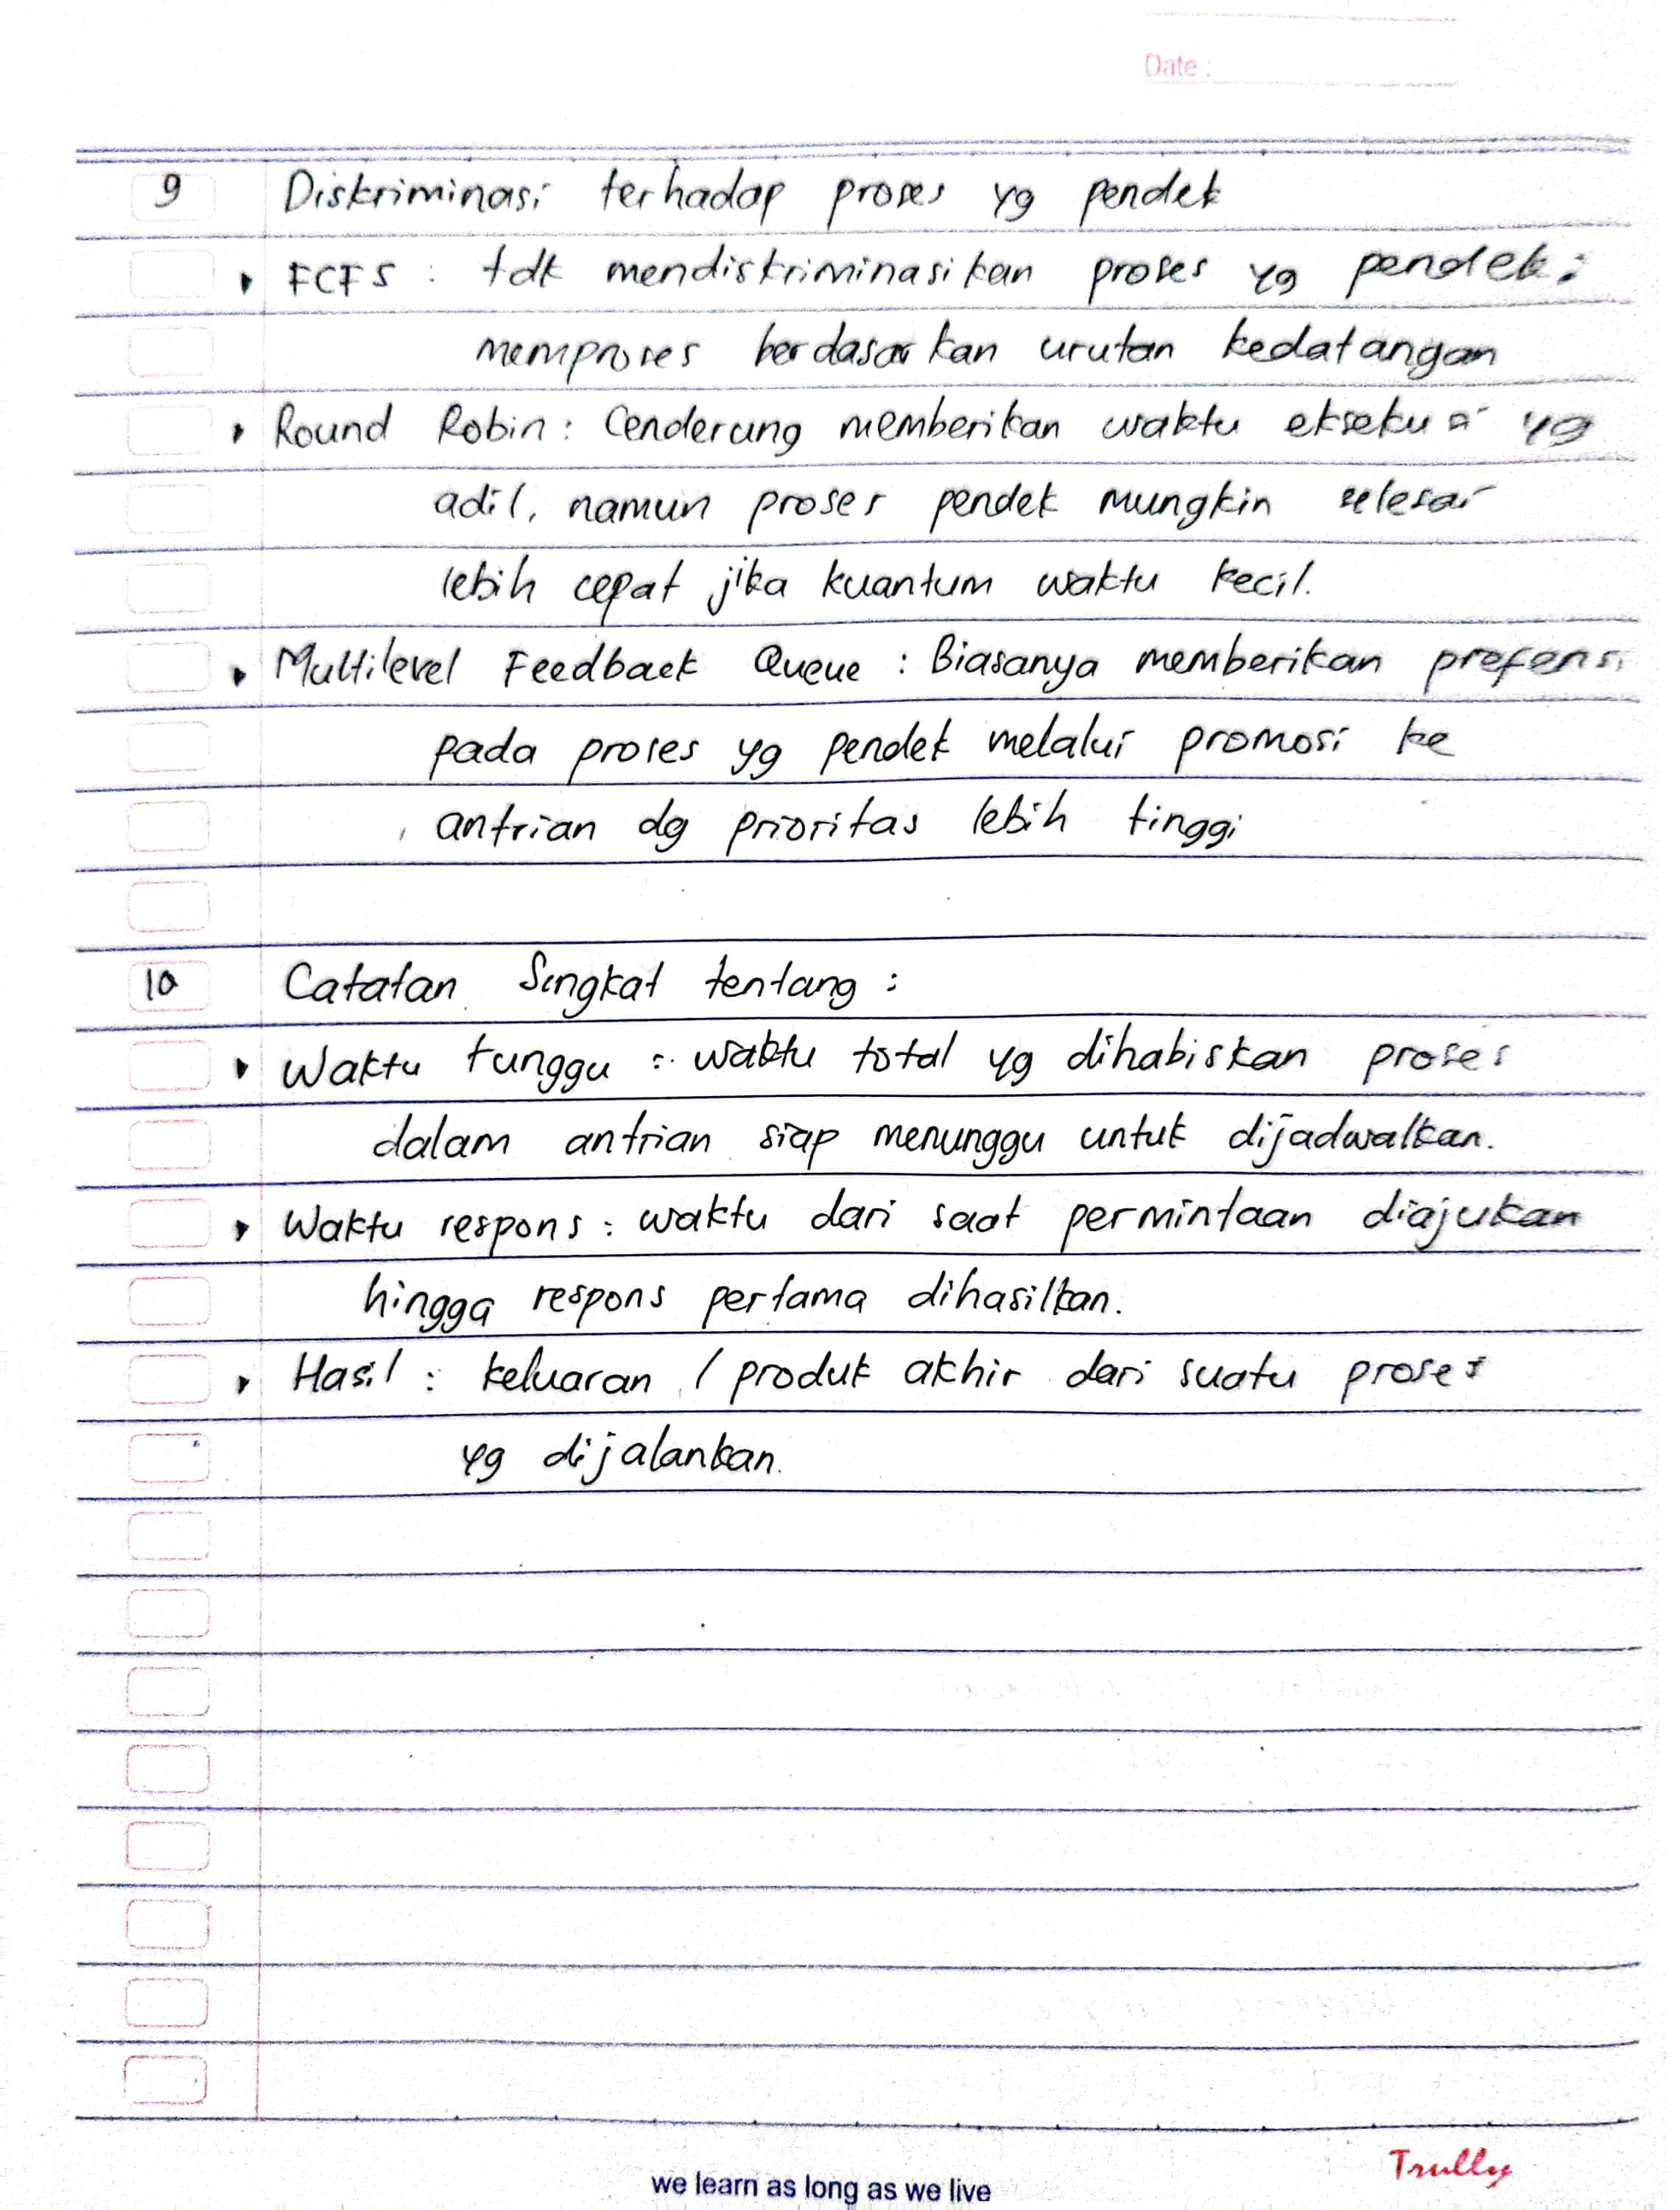 Date :
9 Diskriminasi terhadap proses yg pendek
FCFS : tdk mendiskriminasikan proses yg pendek;
memproses berdasarkan urutan kedatangan
Round Robin : Cenderung memberikan waktu eksekusi yg
adil, namun proses pendek mungkin selesai
lebih cepat jika kuantum waktu kecil.
Multilevel Feedback Queue : Biasanya memberikan
pada proses yg pendek melalui promosi ke
antrian dg prioritas lebih tinggi
10 Catatan Singkat tentang :
Waktu tunggu : waktu total yg dihabiskan proses
dalam antrian siap menunggu untuk dijadwalkan.
Waktu respons : waktu dari saat permintaan diajukan
hingga respons pertama dihasilkan.
Hasil : keluaran / produk akhir dari suatu proses
yg dijalankan.
we learn as long as we live
Trully